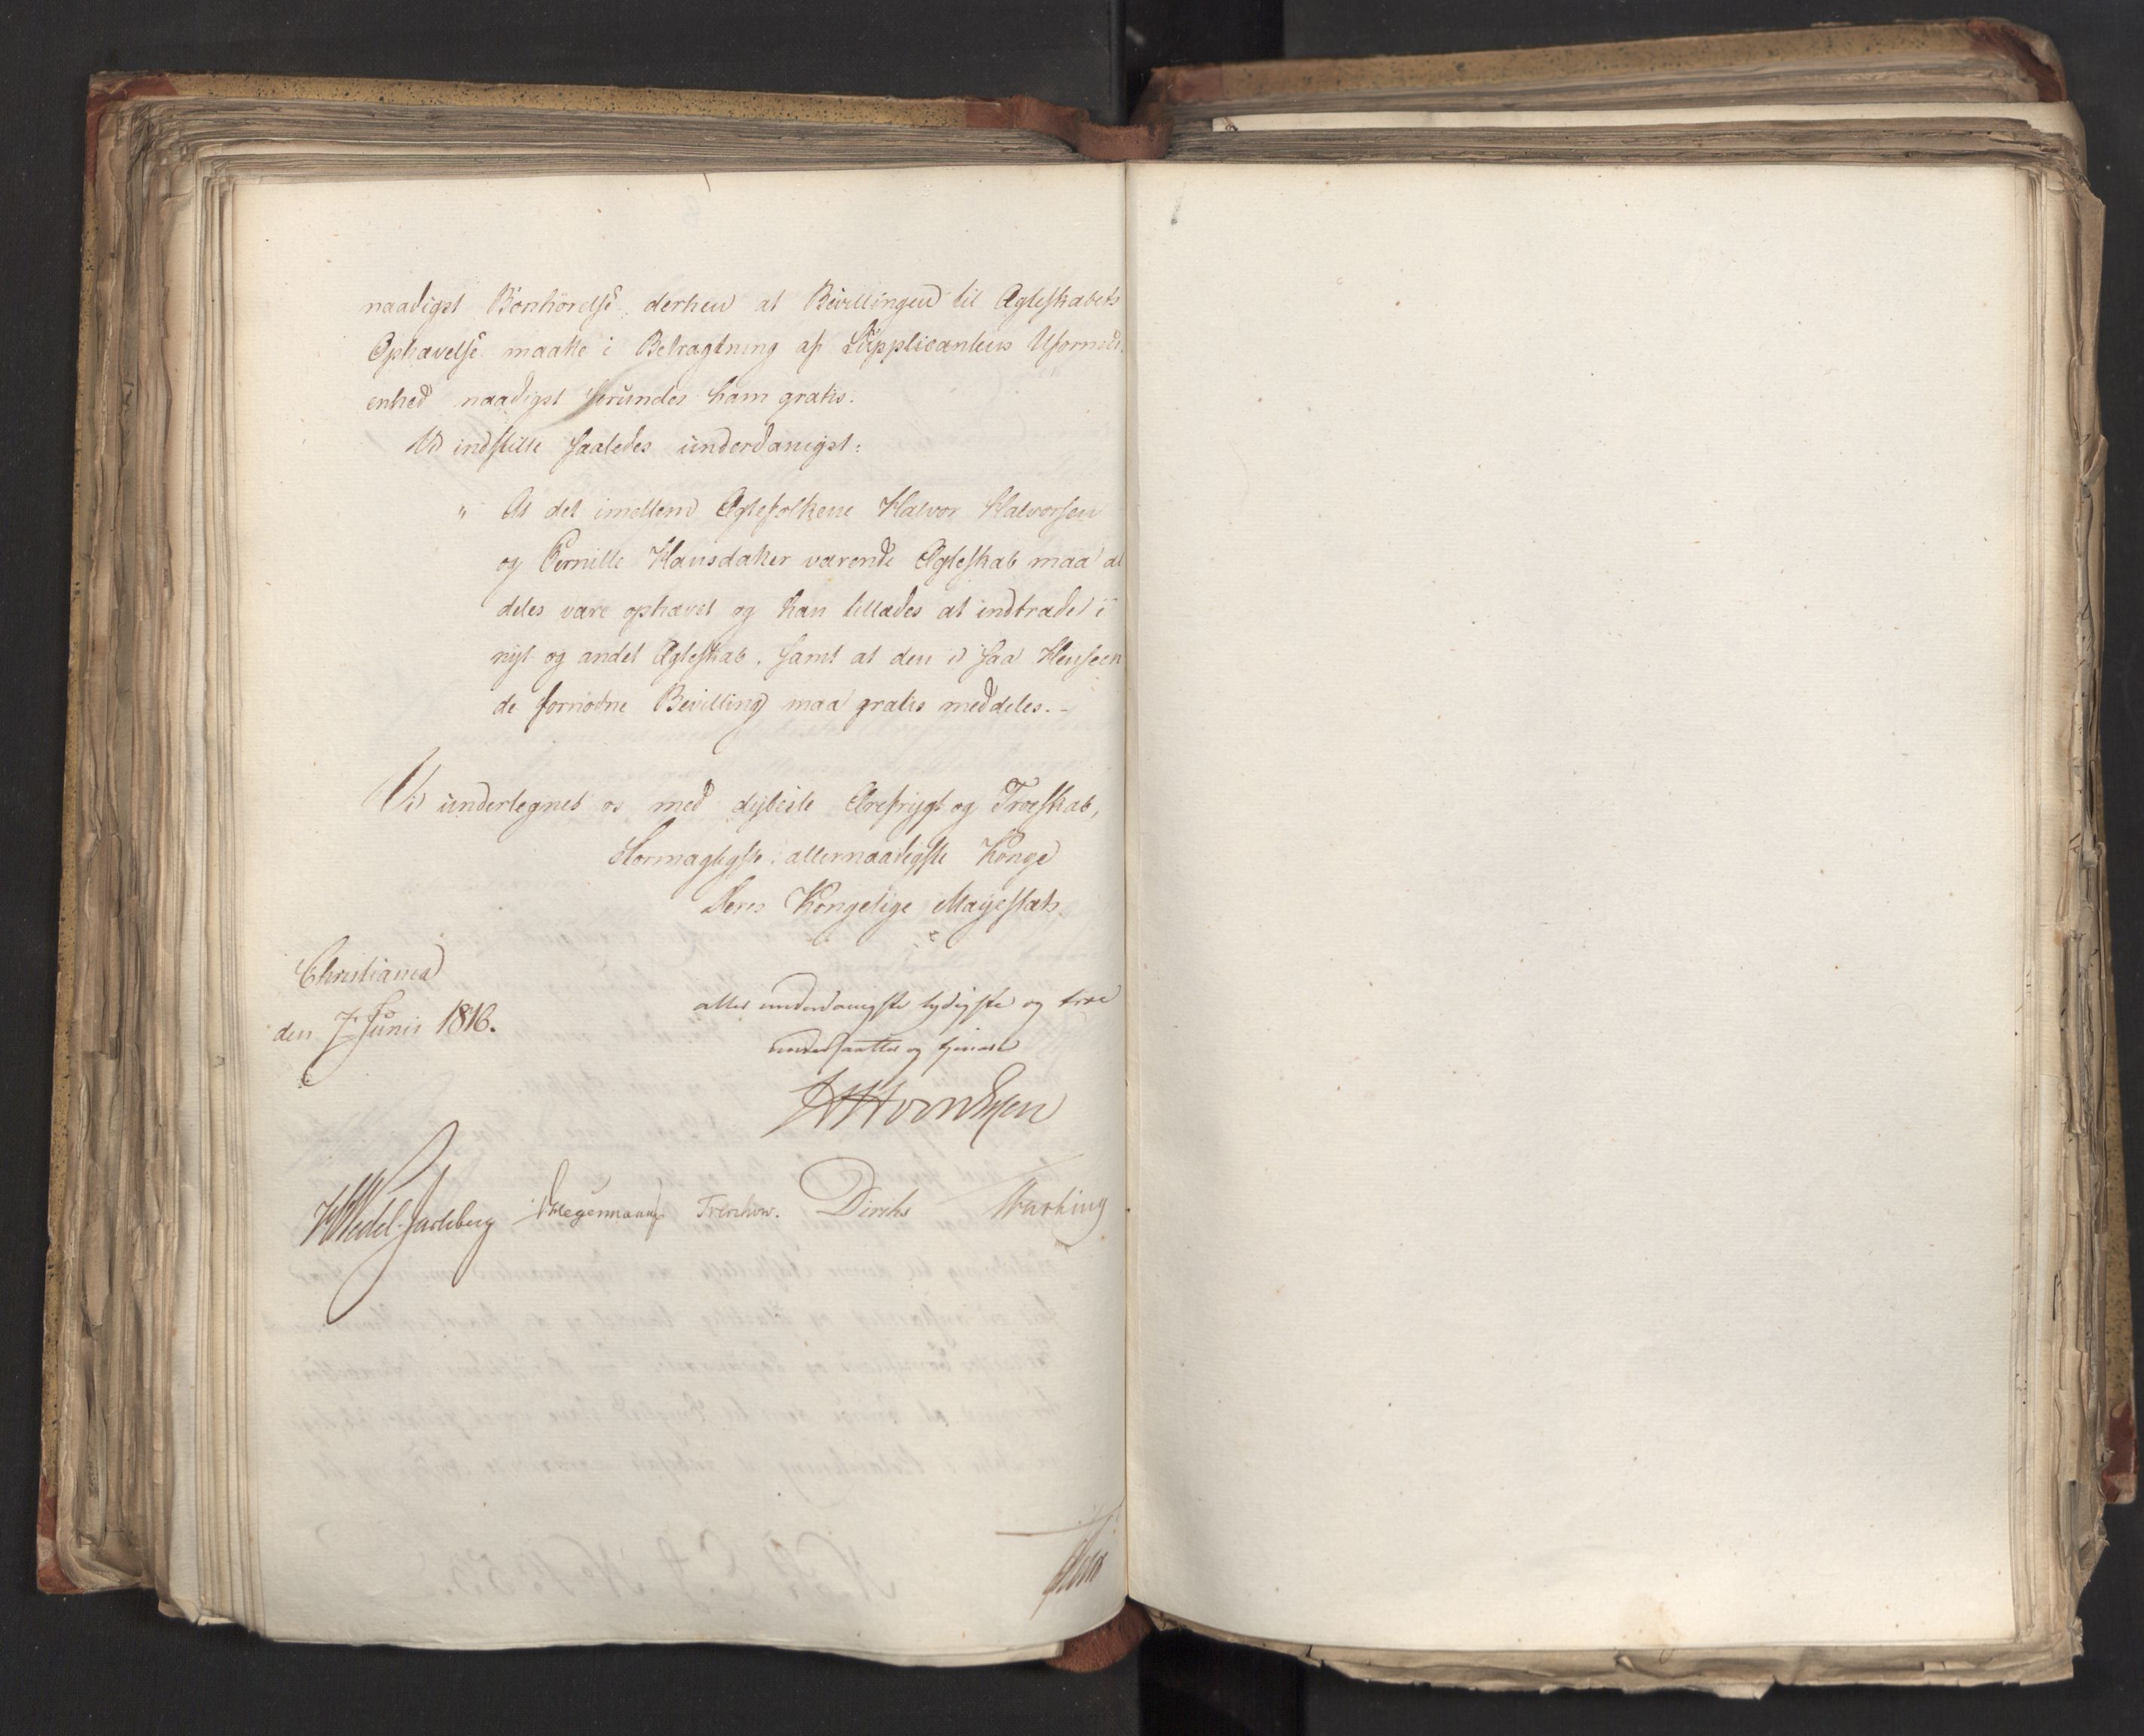 naadigst Bønhørelse, derhen at Bevillingen til Ægteskabets
Ophævelse maatte i Betragtning af Supplicantens Uformu-
enhed naadigst forundes ham gratis.
Vi indstille saaledes underdanigst:
" At det imellem Ægtefolkene Halvor Halvorsen
og Pernille Hansdatter værende Ægteskab maa al
deles være ophævet og han tillades at indtræde i
nyt og andet Ægteskab, samt at den i saa Henseen
de fornødne Bevilling maa gratis meddeles.-
Vi undertegnes os med dybeste Ærefrygt og Troeskab,
Stormægtigste, allernaadigste Konge
Deres Kongelige Majestæts
Christiania
den 7 Junii 1816.
allerunderdanigste lydigste og troe
undersaatter og tjenere
HWedel Jarlsberg Hegermann Treschow. Diriks Motzfeldt